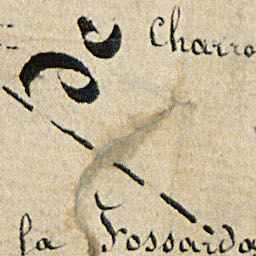 De
Charro
la Fossarda